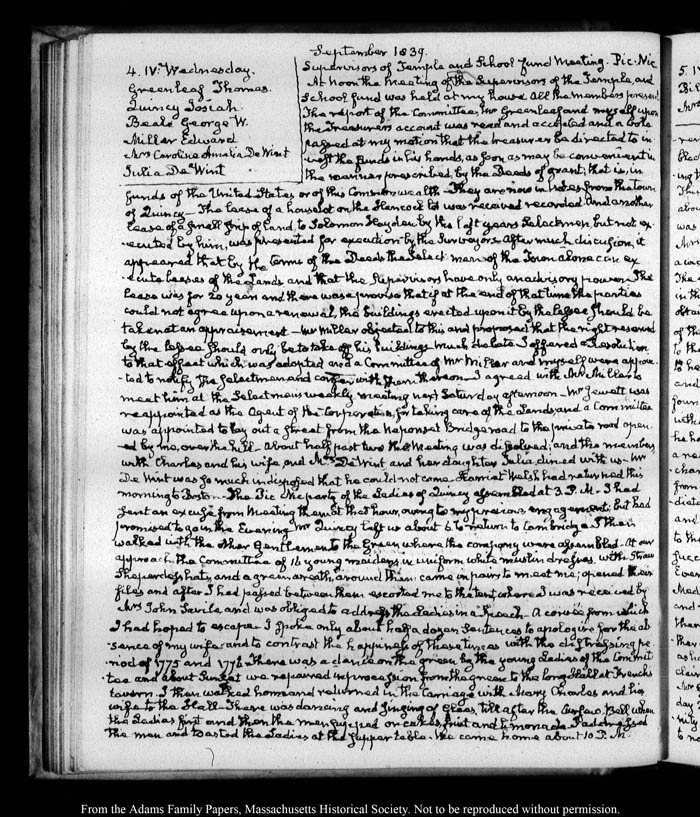 September 1839.
4. IV. Wednesday.
Greenleaf Thomas.
Quincy Josiah
Beale George W.
Miller Edward
Mrs Caroline Amelia De Wint
Julia De Wint
Supervisors of Temple and School fund Meeting. Pic-Nic
At Noon the meeting of the Supervisors of the Temple, and
School fund was held at my house. All the members present
The report of the Committee, Mr Greenleaf and myself upon
the Treasurers account was read and accepted and a Vote
passed at my motion that the treasurer be directed to in
vest the funds in his hands, as soon as may be convenient in
the manner prescribed, by the Deeds of grant; that is, in
funds of the United States or of this Commonwealth - They are now in notes from the town
of Quincy - The lease of a house lot on the Hancock lot was received recorded. And another
lease of a small strip of land, to Solomon Hayden by the last years Selectmen, but not ex
-ecuted by him, was presented for execution by the Surveyors. After much discussion, it
appeared that by the terms of the Deeds the Select men of the Town alone can ex
-ecute leases of the Lands and that the Supervisors have only an advisory power. The
lease was for 20 year and there was a proviso that if at the end of that time the parties
could not agree upon a renewal, the buildings erected upon it by the lessee should be
taken at an appraisement - Mr Miller objected to this and proposed that the right reserved
by the lessee should only be to take off his buildings. Much debate. I offered a Resolution
to that effect which was adopted and a Committee of Mr Miller and myself were appoin
-ted to notify the Selectmen and confer with them thereon - I agreed with Mr Miller to
meet him at the Selectmens weekly meeting next Saturday afternoon - Mr Jewett was
reappointed as the Agent of the Corporation, for taking care of the Lands, and a Committee
was appointed to lay out a Street from the Neponset Bridge road to the private road open
-ed by me, over the hill - About half past two the Meeting was dissolved; and the members,
with Charles and his wife and Mrs De Wint and her daughter Julia dined with us - Mr
De Wint was so much indisposed that he could not come. Harriet Welsh had returned this
morning to Boston. The Pic Nic party of the Ladies of Quincy assembled at 3. P.M. I had
sent an excuse from meeting them at that hour, owing to my previous engagement; but had
promised to go in the Evening. Mr Quincy left us about 6 to return to Cambridge. I then
walked with the other Gentlemen to the Green where the company were assembled. At our
approach the Committee of 16 young maidens, in uniform white muslin dresses, with straw
Shepherdess hats, and a green wreath around them came in pairs to meet me; opened their
files and after I had passed between them escorted me to the tent where I was received by
Mrs John Savile and was obliged to address the Ladies in a Speech. A course from which
I had hoped to escape. I spoke only about half a dozen sentences to apologize for the ab
-sence of my wife and to contrast the happiness of these times with the distressing pe
-riod of 1775 and 1776. There was a dance on the green by the young Ladies of the Commit
-tee and about Sunset we repaired in procession from the green to the long Hall at French's
tavern. I then walked home and returned in the Carriage with Mary Charles and his
wife to the Hall. There was dancing and singing of Glees, till after the Curfew Bell when
the Ladies first and then the men supped on cakes fruit and lemonade. I addressed
the men and toasted the Ladies at the supper table. We came home about 10 P.M.
From the Adams Family Papers, Massachusetts Historical Society. Not to be reproduced without permission.